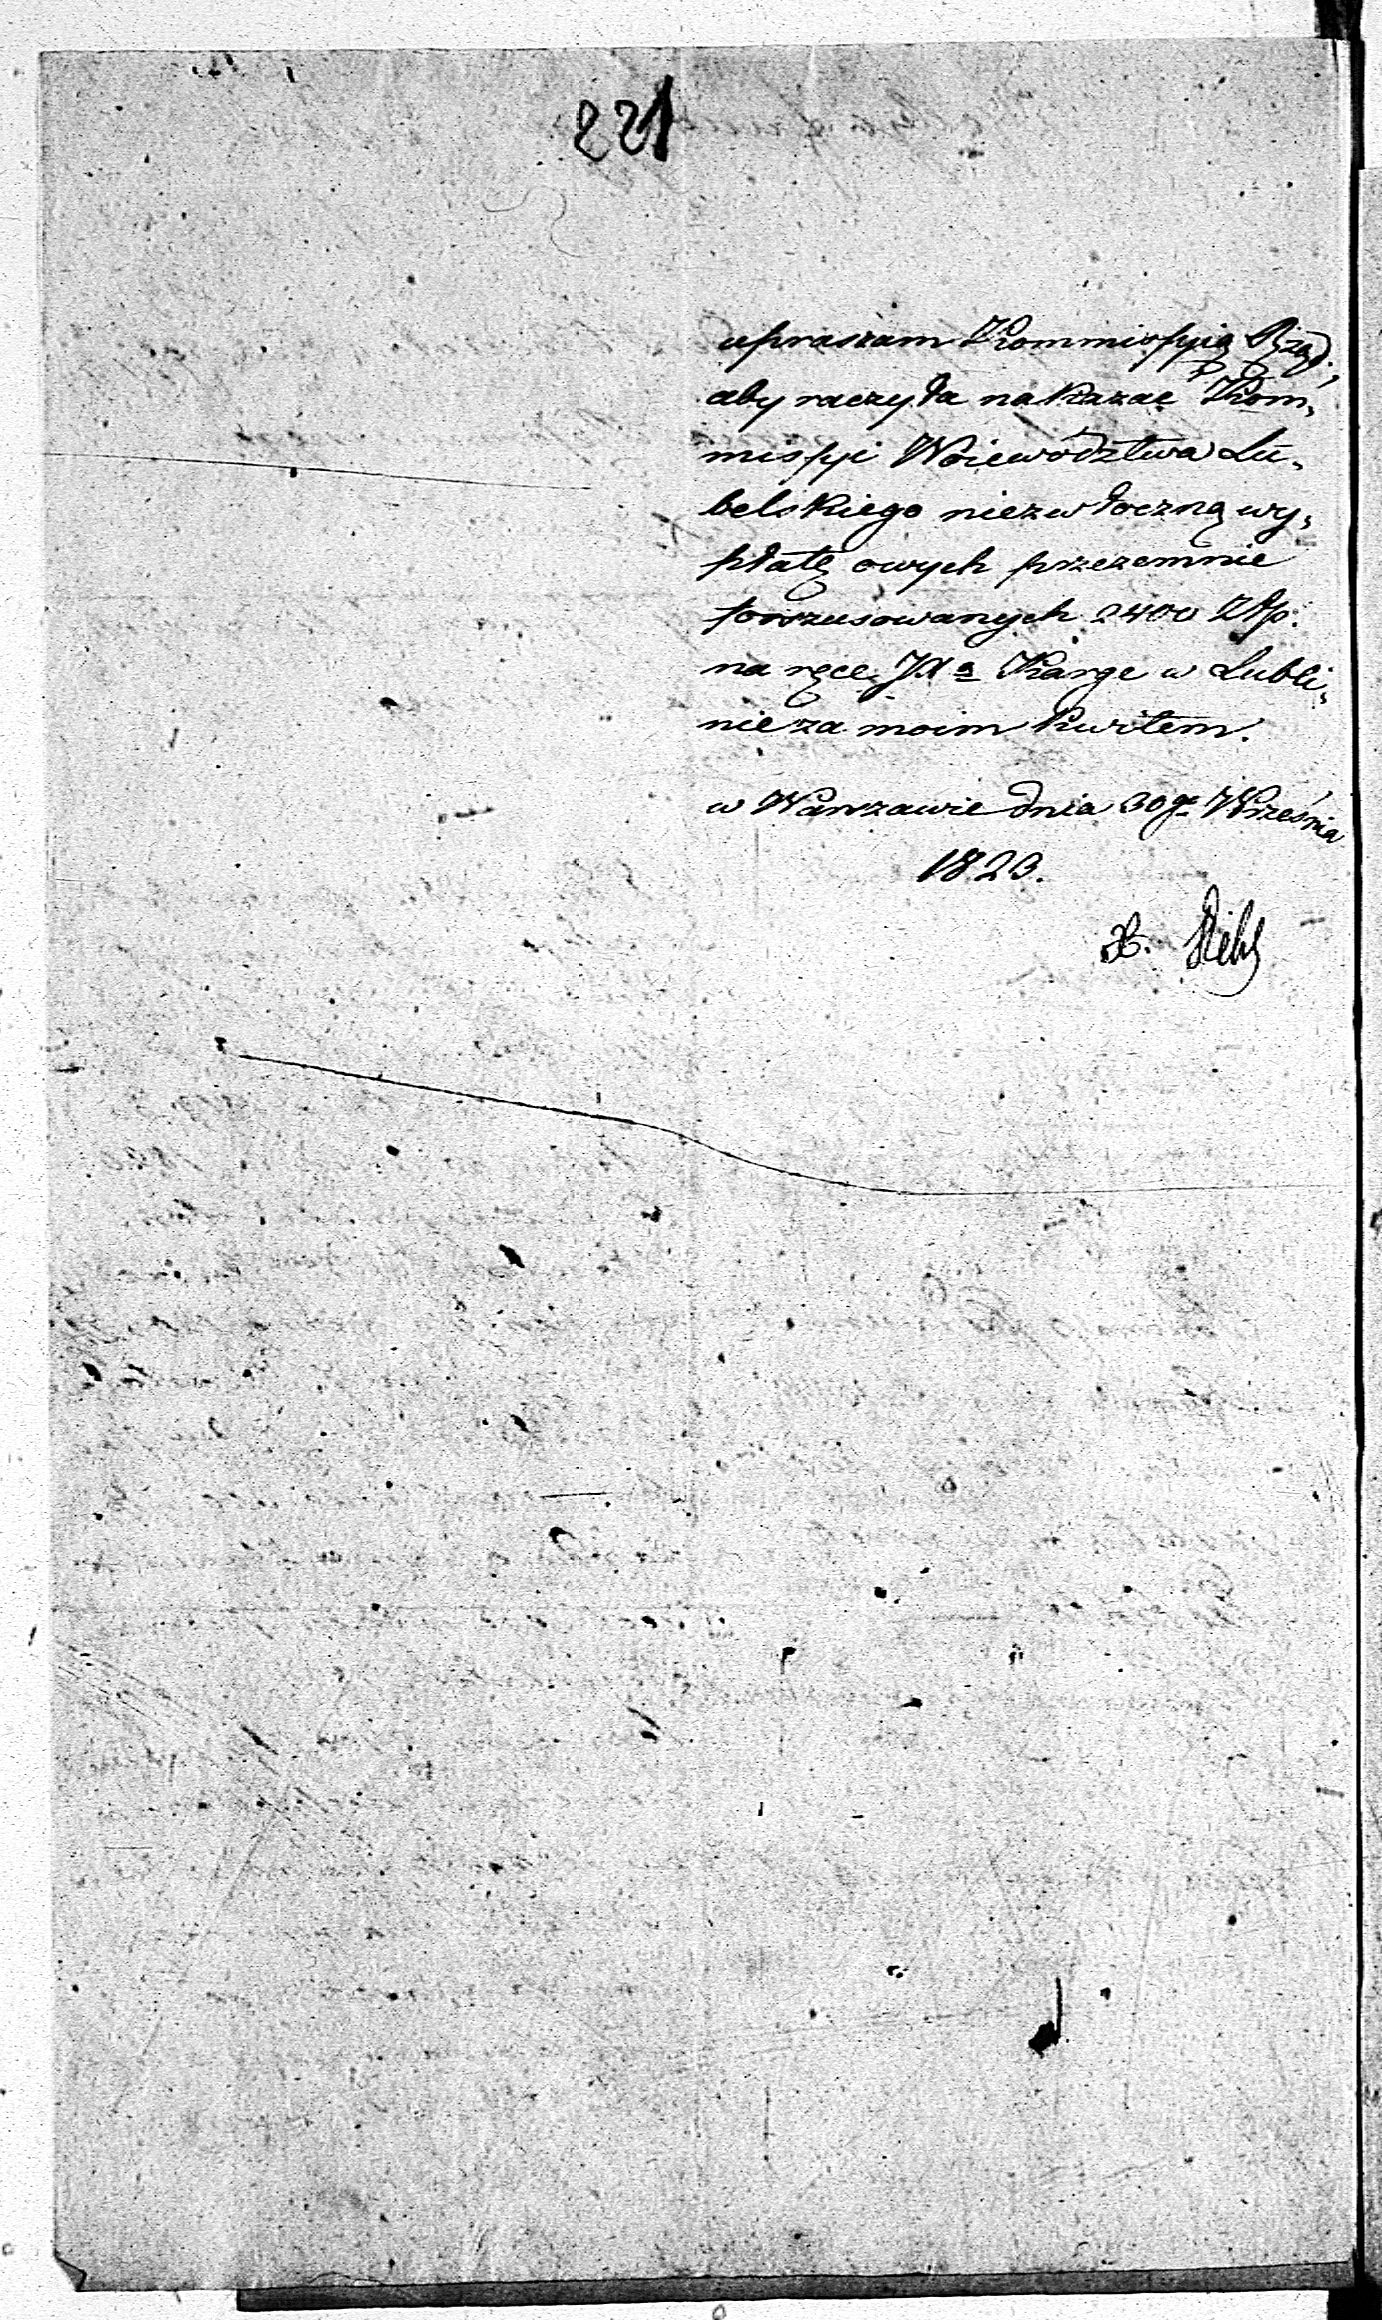 221
upraszam Kommissyią Rząd:,
aby raczyła nakazać Kom,
missyi Woiewództwa Lu,
belskiego niezwłoczną wy,
płatę owych przezemnie
forszusowanych 2400 Złp.
na ręce JXa Karge w Lubli,
nie za moim kwitem.
w Warszawie dnia 30go Września
1823.